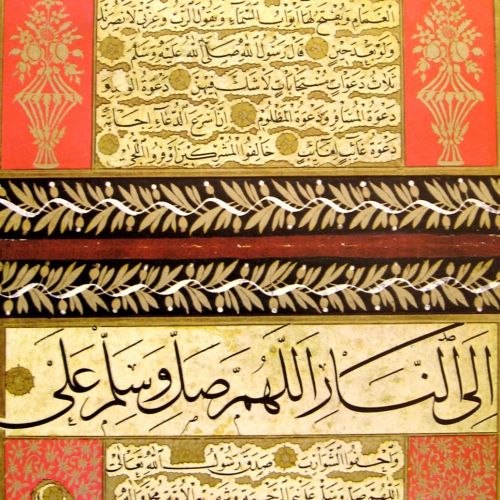 الغمام ويفتح لها ابواب السماء ويقول الرب وعزتي لانصرنك
ولو بعد حين قال رسول الله صلى الله عليه وسلم
ثلاث دعوات مستجابات لا شك فيهن دعوة الوالد و
دعوة المسافر ودعوة المظلوم ان اسرع الدعاء اجابة
دعوة غائب لغائب خالفوا المشركين ووفروا اللحى
اِلَى النَّارِ اَللّٰهُمَّ صَلِّ وَسَلِّمْ عَلٰى
واحفوا الشوارب صدق رسول الله تعالى